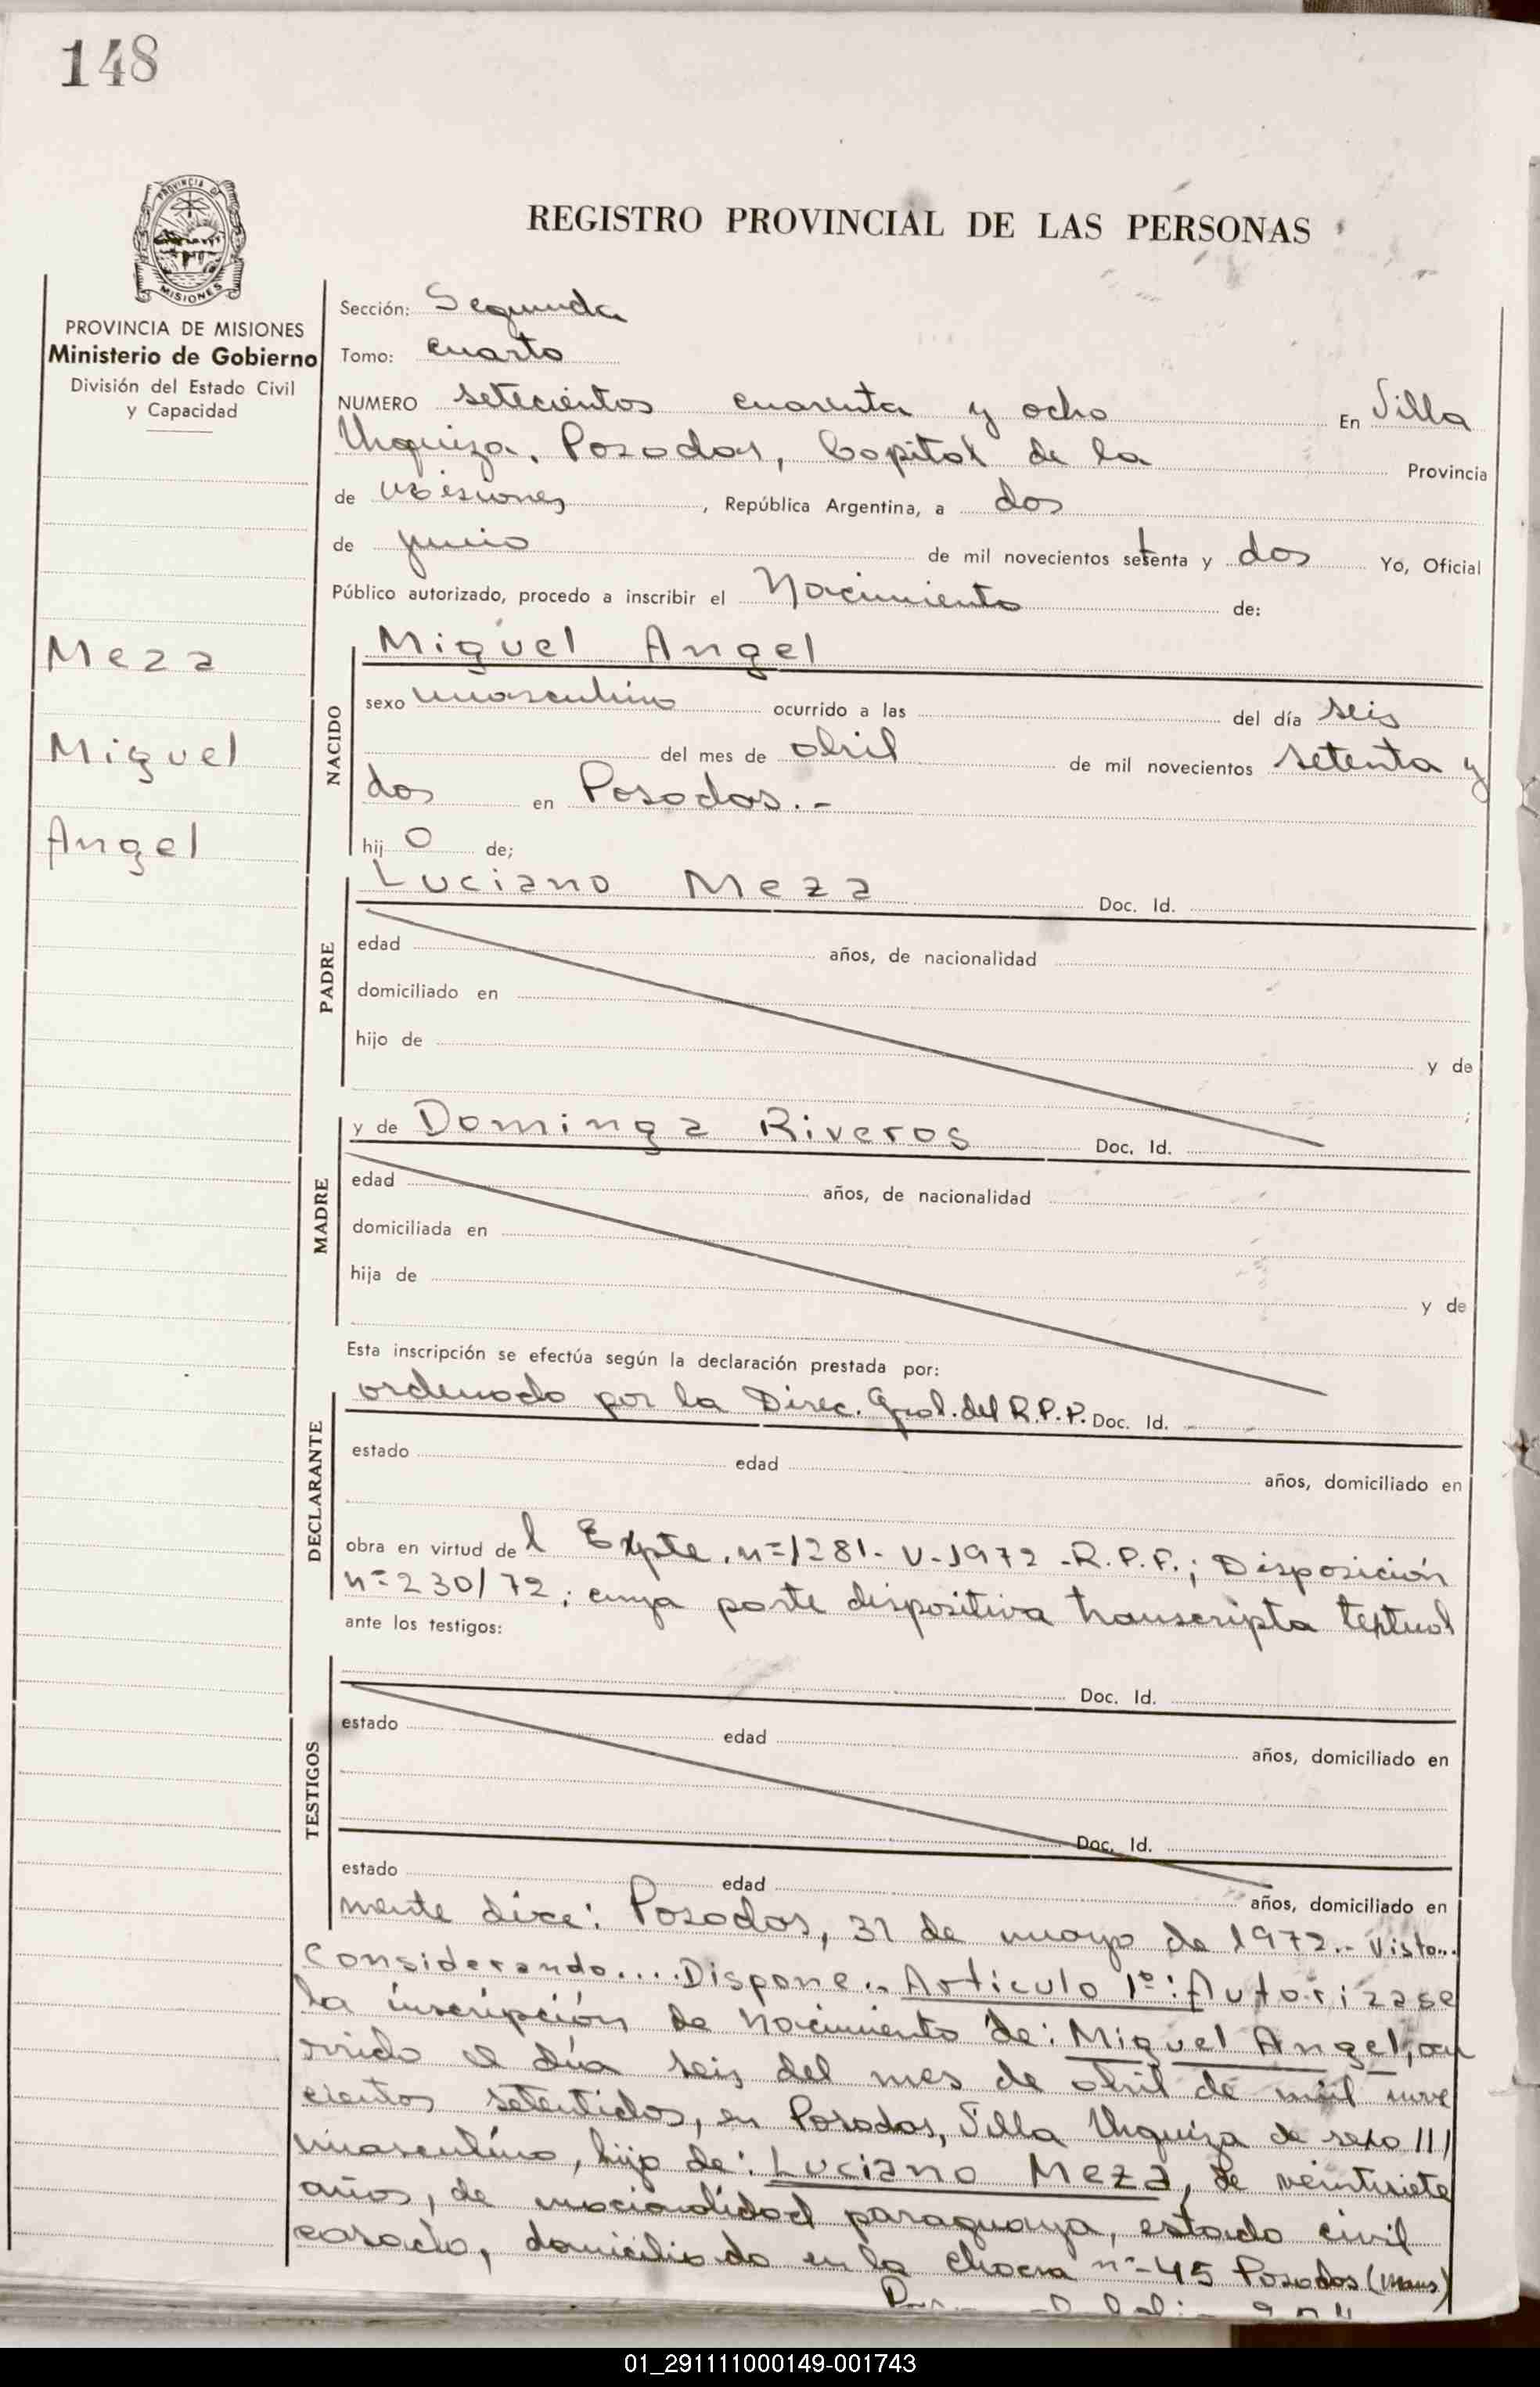 148
PROVINCIA DE
MISIONES
REGISTRO PROVINCIAL DE LAS PERSONAS
PROVINCIA DE MISIONES
Ministerio de Gobierno
División del Estado Civil
y Capacidad
Meza
Miguel
Angel
Sección: Segunda
Tomo: cuarto
NUMERO setecientos cuarenta y ocho En Villa
Urquiza, Posadas, Capital de la Provincia
de Misiones, República Argentina, a dos
de junio de mil novecientos setenta y dos Yo, Oficial
Público autorizado, procedo a inscribir el Nacimiento de:
NACIDO
Miguel Angel
sexo masculino ocurrido a las del día seis
del mes de abril de mil novecientos setenta y
dos en Posadas.-
hij o de;
PADRE
Luciano Meza Doc. Id.
edad años, de nacionalidad
domiciliado en
hijo de y de
;
MADRE
y de Dominga Riveros Doc. Id.
edad años, de nacionalidad
domiciliada en
hija de y de
Esta inscripción se efectúa según la declaración prestada por:
DECLARANTE
ordenado por la Direc. Gral. del R.P.P. Doc. Id.
estado edad años, domiciliado en
obra en virtud de l Expte. n=1281-V-1972-R.P.P.; Disposición
n=230/72; cuya parte dispositiva transcripta textual
ante los testigos:
TESTIGOS
Doc. Id.
estado edad años, domiciliado en
Doc. Id.
estado edad años, domiciliado en
mente dice: Posadas, 31 de mayo de 1972.- Visto...
Considerando.... Dispone.. Artículo 1º: Autorizase
la inscripción de nacimiento de: Miguel Angel, ocu
rrido el día seis del mes de abril de mil nove
cientos setentidos, en Posadas, Villa Urquiza de sexo ///
masculino, hijo de: Luciano Meza, de veintisiete
años, de nacionalidad paraguaya, estado civil
casado, domiciliado en la chacra n=45 Posadas (Mnes)
01_291111000149-001743